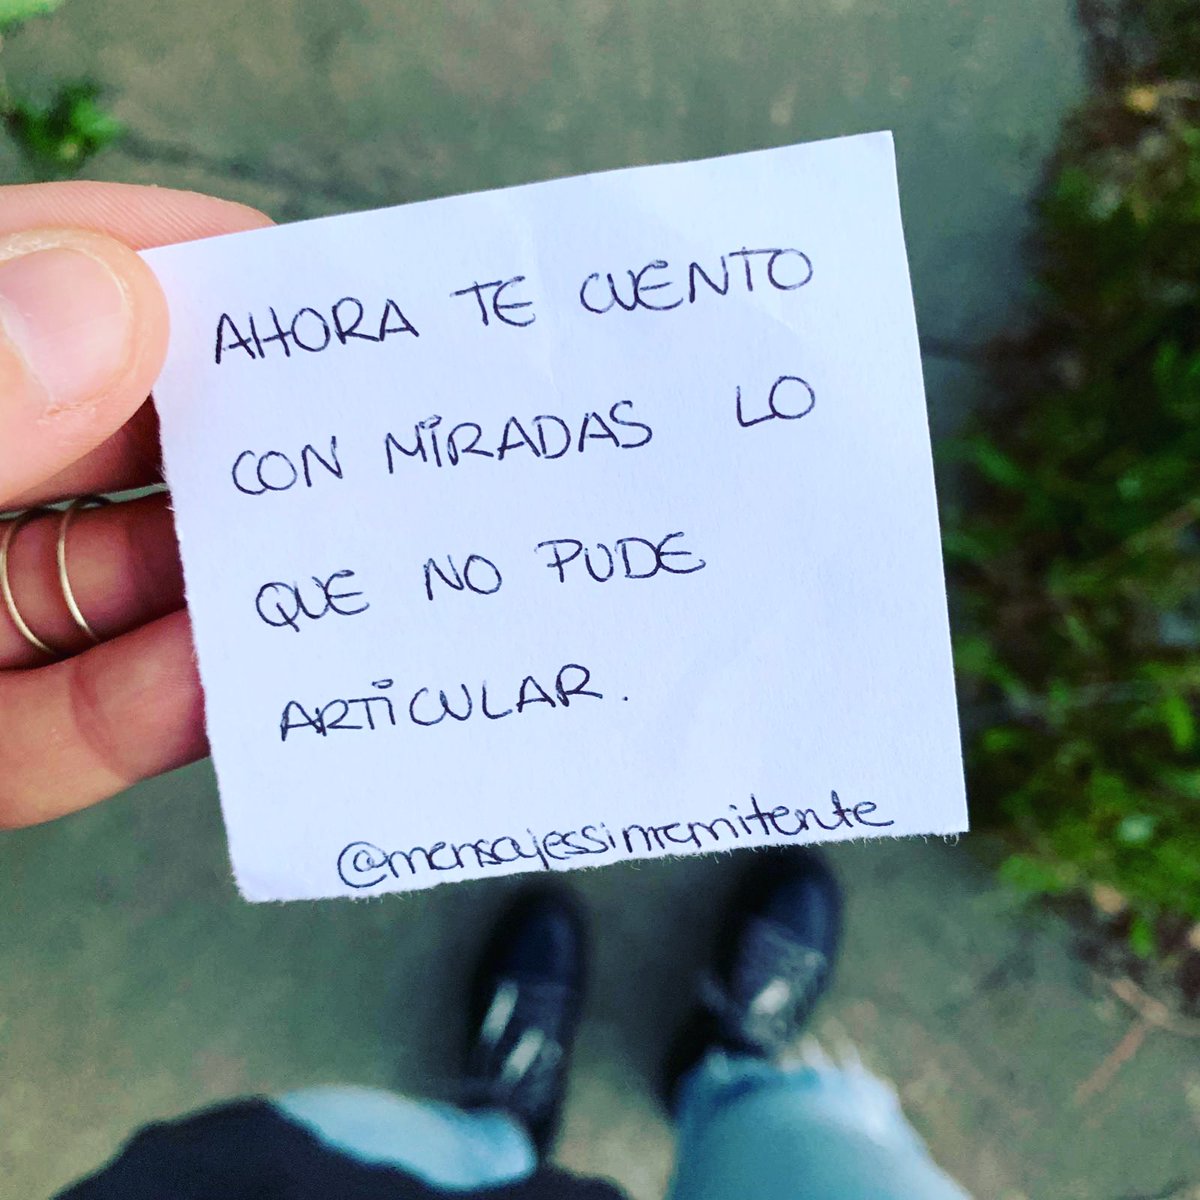 AHORA TE CUENTO
CON MIRADAS LO
QUE NO PUDE
ARTICULAR.
@mensajessinremitente